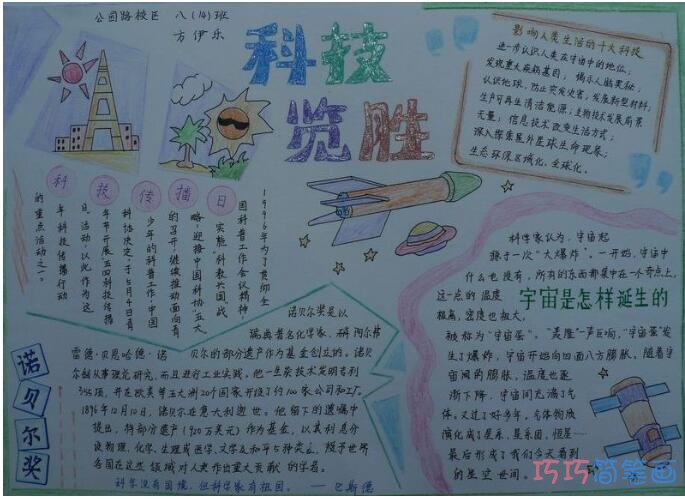 公园路校区 八(14)班
方伊乐
科技
览胜
影响人类生活的十大科技
进一步认识人类在宇宙中的地位;
发现重大疾病基因, 揭示人脑奥秘;
认识地球,防止突发灾害;发展新型材料;
生产可再生清洁能源;生物技术发展前景
无量; 信息技术改变生活方式;
深入探索星外星球生命现象;
生态环保区域化、全球化。
科技传播日
1996年为了贯彻全
国科普工作会议精神
实施“科教兴国”战
略,迎接中国科协“五大”
的召开,继续推动面向青
少年的科普工作,中国
科协决定,于5月4日青
年节开展五四科技传播
日活动,以此作为这
年科技传播行动
的重点活动之一。
科学家认为,宇宙起
源于一次“大爆炸”。一开始,宇宙中
什么也没有,所有的东西都集中在一个奇点上,
这一点的温度
极高,密度也极大,
宇宙是怎样诞生的
被称为“宇宙蛋”。“轰隆”一声巨响,“宇宙蛋”发
生了爆炸,宇宙开始向四面八方膨胀。随着宇
宙间的膨胀,温度也逐
渐下降,宇宙间充满了气
体。又过了好多年,气体物质
演化成了星系、星系团、恒星……
最后形成了我们今天看到
的星空世间。
诺贝尔奖
诺贝尔奖是以
瑞典著名化学家、
雷德·贝恩哈德·诺
贝尔的部分遗产作为基金创立的。诺贝
尔一生致力
355项,并在欧美等五大洲20个国家开设了约100家公司和工厂。
1896年12月10日,诺贝尔在意大利逝世。他留下的遗嘱中
提出,将部分遗产(920万美元)作为基金,以其利息分
设物理、化学、生理或医学、文学及和平5种奖金,授予世界
各国在这些领域对人类作出重大贡献的学者。
科学没有国境,但科学家有祖国。 ——巴斯德
巧巧简笔画